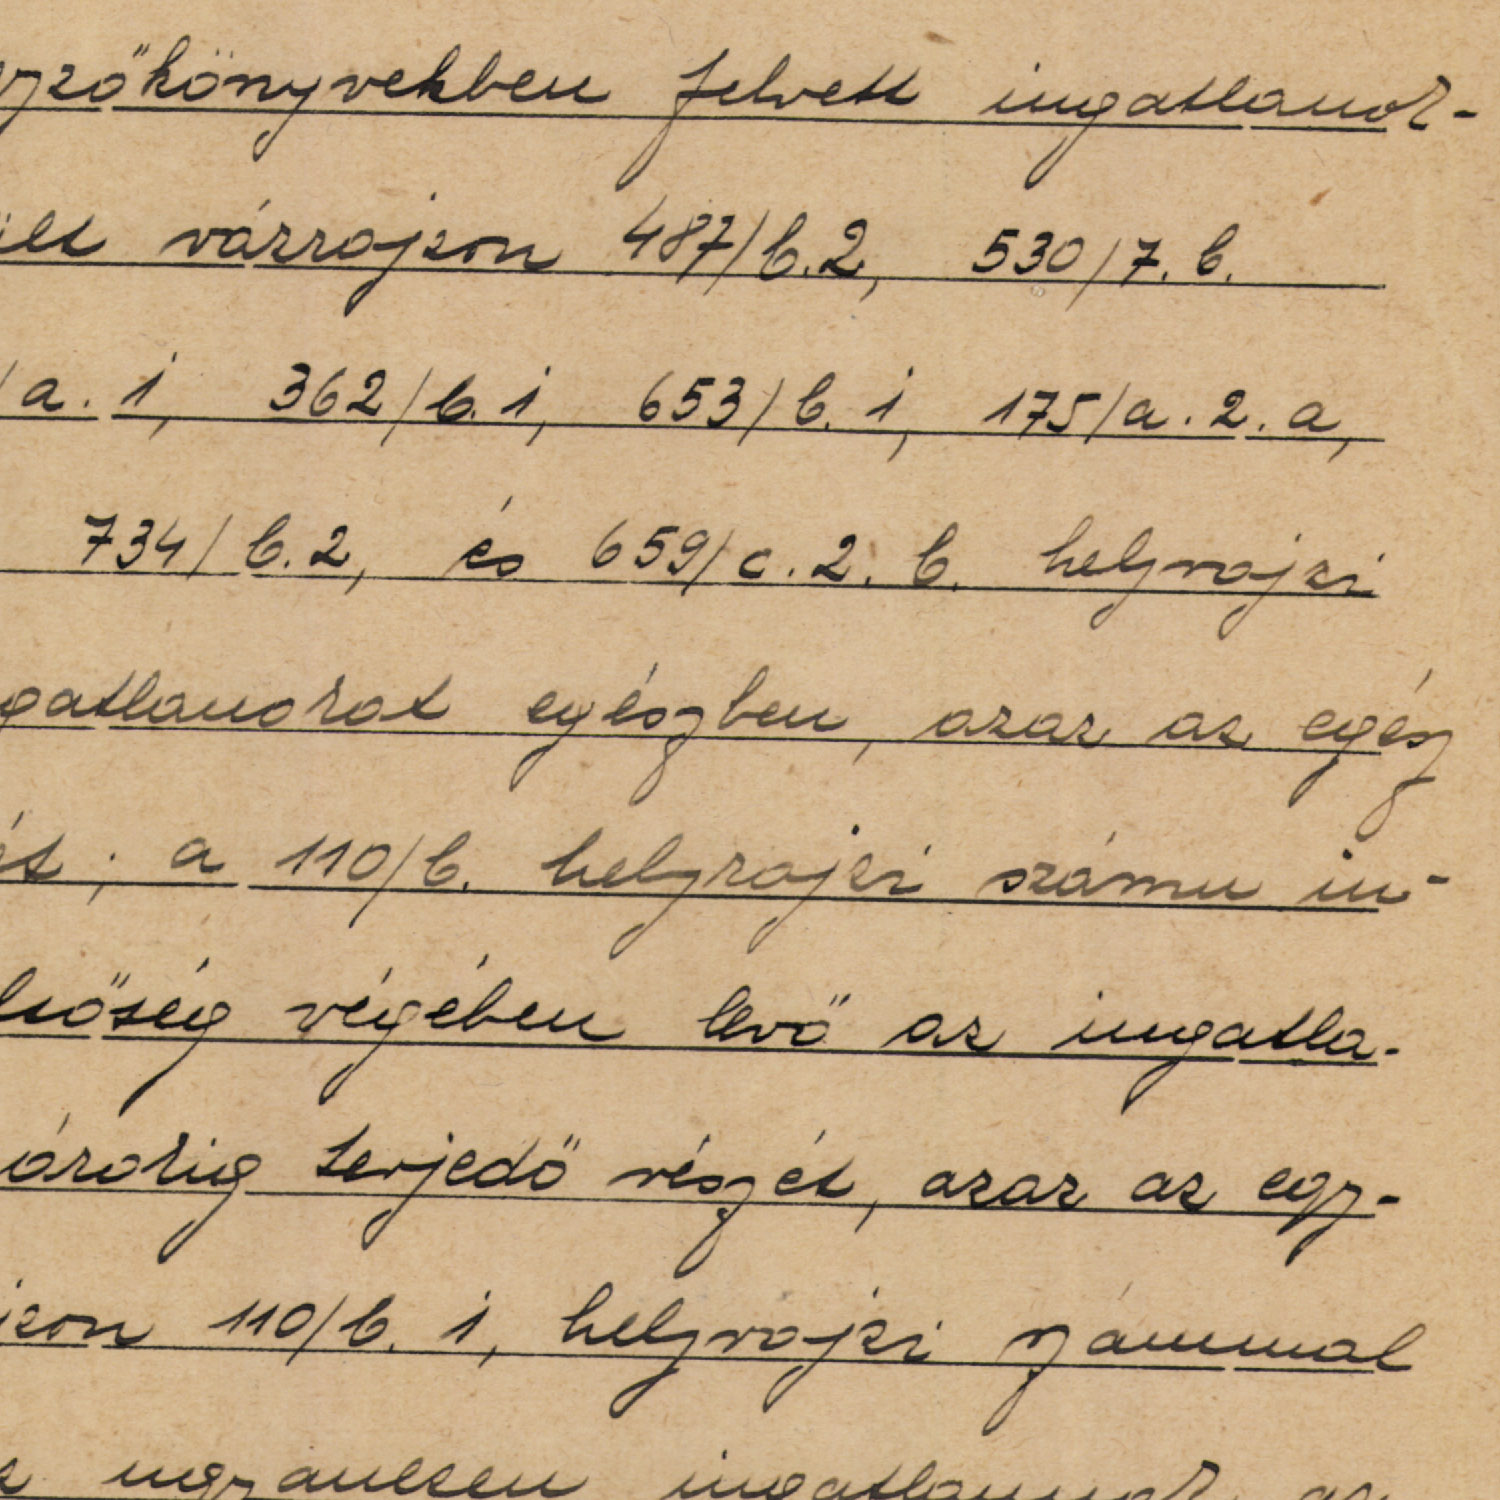 gyzőkönyvekben felvett ingatlanok-
ült vázrajzon 487/b.2, 530/7. b.
/a. 1, 362/b. 1, 653/b. 1, 175/a. 2. a,
734/b.2, és 659/c. 2. b. helyrajzi
gatlanokat egészben, azaz az egész
ét; a 110/b. helyrajzi számu in-
lsőség végében levő az ingatla-
árokig terjedő részét, azaz az egy-
jzon 110/b. 1, helyrajzi számmal
ugyanezen ingatlannak az